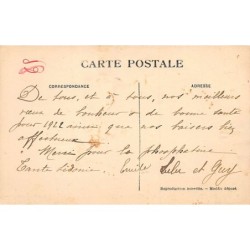 CARTE POSTALE
CORRESPONDANCE
ADRESSE
De tous, et à tous, nos meilleurs
vœux de bonheur & de bonne santé
pour 1922 ainsi que nos baisers bien
affectueux
Merci pour la phosphatine
Tante Sidonie. Emile Lulu et Guy
Reproduction interdite - Modèle déposé.